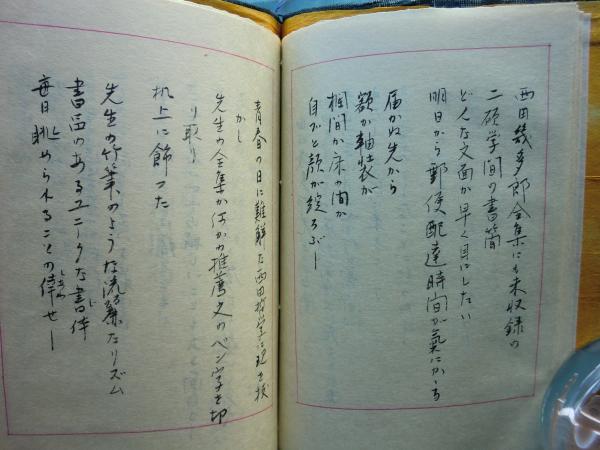 西田幾多郎全集にも未収録の
二碩学間の書簡
どんな文面か早く目にしたい
明日から郵便配達時間が氣にかゝる
届かぬ先から
額か軸装が
欄間か床の間か
自づと顔が綻ろぶ―
青春の日に難解な西田哲学に
かし
先生の全集か何かの推薦文のペン字を切
り取り
机上に飾つた
先生の竹筆のような流麗なリズム
書品のあるユニークな書体
毎日眺められることの倖せ―